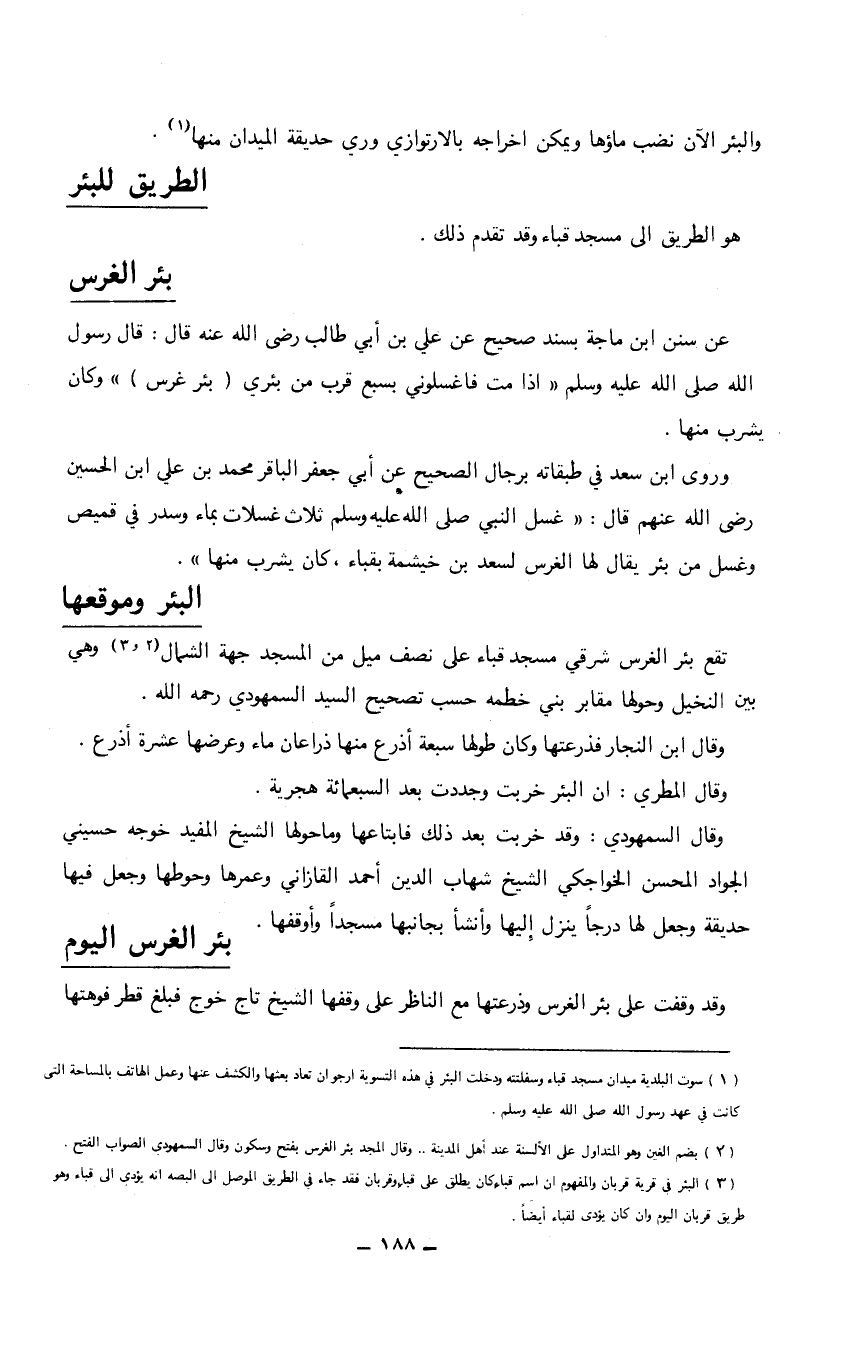 والبئر الآن نضب ماؤها ويمكن اخراجه بالارتوازي وري حديقة الميدان منها(١) .
الطريق للبئر
هو الطريق الى مسجد قباء وقد تقدم ذلك .
بئر الغرس
عن سنن ابن ماجة بسند صحيح عن علي بن أبي طالب رضى الله عنه قال : قال رسول
الله صلى الله عليه وسلم « اذا مت فاغسلوني بسبع قرب من بئري ( بئر غرس ) » وكان
يشرب منها .
وروى ابن سعد في طبقاته برجال الصحيح عن أبي جعفر الباقر محمد بن علي ابن الحسين
رضى الله عنهم قال : « غسل النبي صلى الله عليه وسلم ثلاث غسلات بماء وسدر في قميص
وغسل من بئر يقال لها الغرس لسعد بن خيشمة بقباء ، كان يشرب منها » .
البئر وموقعها
تقع بئر الغرس شرقي مسجد قباء على نصف ميل من المسجد جهة الشمال(٢ و ٣) وهي
بين النخيل وحولها مقابر بني خطمه حسب تصحيح السيد السمهودي رحمه الله .
وقال ابن النجار فذرعتها وكان طولها سبعة أذرع منها ذراعان ماء وعرضها عشرة أذرع .
وقال المطري : ان البئر خربت وجددت بعد السبعمائة هجرية .
وقال السمهودي : وقد خربت بعد ذلك فابتاعها وماحولها الشيخ المفيد خوجه حسيني
الجواد المحسن الخواجكي الشيخ شهاب الدين أحمد القازاني وعمرها وحوطها وجعل فيها
حديقة وجعل لها درجاً ينزل إليها وأنشأ بجانبها مسجداً وأوقفها .
بئر الغرس اليوم
وقد وقفت على بئر الغرس وذرعتها مع الناظر على وقفها الشيخ تاج خوج فبلغ قطر فوهتها
( ١ ) سوت البلدية ميدان مسجد قباء وسفلتته ودخلت البئر في هذه التسوية ارجو ان تعاد بعثها والكشف عنها وعمل الهاتف بالمساحة التى
كانت في عهد رسول الله صلى الله عليه وسلم .
( ٢ ) بضم الغين وهو المتداول على الألسنة عند أهل المدينة .. وقال المجد بئر الغرس بفتح وسكون وقال السمهودى الصواب الفتح .
( ٣ ) البئر في قرية قربان والمفهوم ان اسم قباء كان يطلق على قباء وقربان فقد جاء في الطريق الموصل الى البصه انه يؤدى الى قباء وهو
طريق قربان اليوم وان كان يؤدى لقباء أيضاً .
– ١٨٨ –